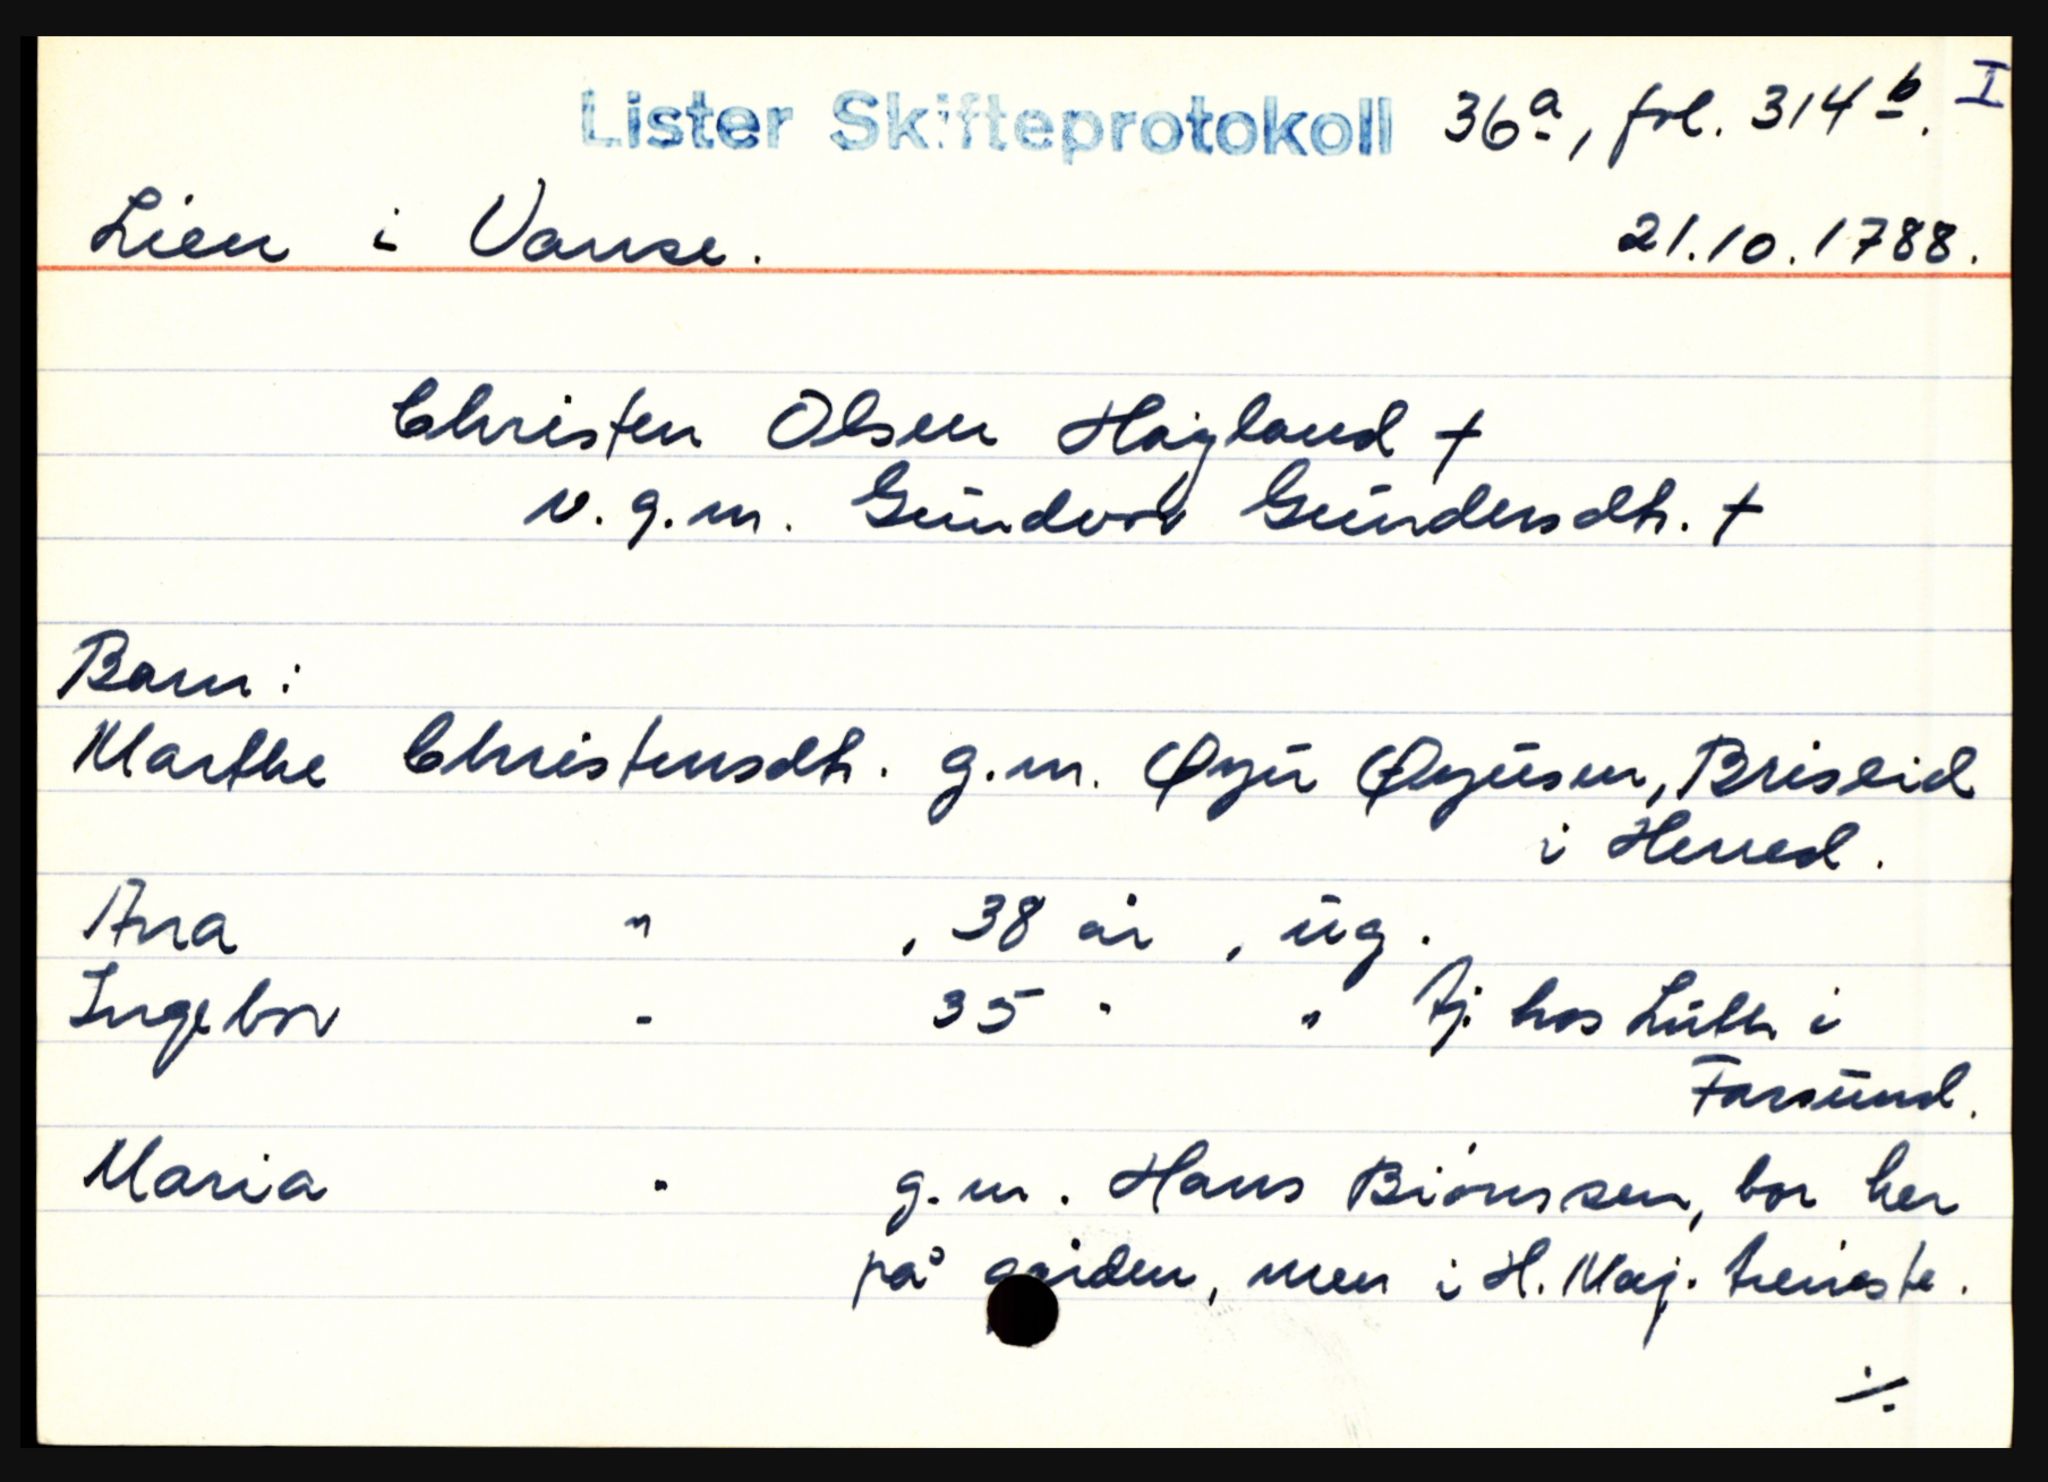 Lister Skifteprotokoll 36a, fol. 314b. I
Lien i Vanse. 21.10.1788.
Christen Olsen Høyland †
v.g.m. Gundvor Gundersdtr. †
Barn:
Marthe Christensdtr. g.m. Øyu Øyusen, Briseid
i Herred.
Ana " , 38 år , ug.
Ingebor - 35 " " tj. hos Lütk i
Farsund.
Maria " g.m. Hans Biørnssen, bor her
på gården, men i H. Maj. tieneste.
./.